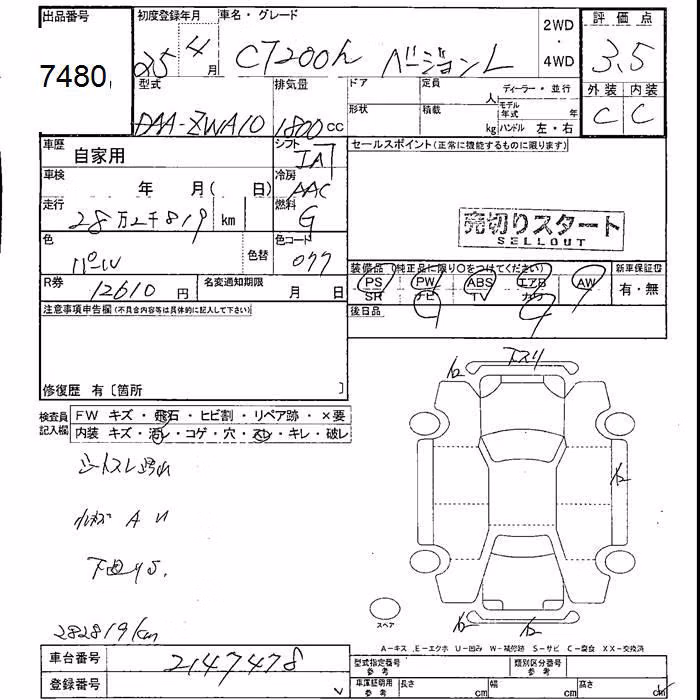 出品番号
7480
初度登録年月
25 4月
車名・グレード
CT200h バージョンL
2WD・4WD
評価点
3.5
外装 内装
C C
型式
DAA-ZWA10
排気量
1800cc
ドア
形状
定員 人
積載 kg
ディーラー・並行
モデル年式 年
ハンドル 左・右
車歴
自家用
シフト
IA
車検
年 月( 日)
冷房
AAC
走行
28万2千819 km
燃料
G
色
パール
色替
色コード
077
R券
12610円
名変通知期限
月 日
セールスポイント(正常に機能するものに限ります)
売切りスタート
SELLOUT
装備品(純正品に限り○をつけてください)
PS PW ABS エアB AW
SR ナビ TV カワ
新車保証書
有・無
後日品
注意事項申告欄(不具合内容等は具体的に記入して下さい)
修復歴 有〔箇所 〕
検査員記入欄
FW キズ・飛石・ヒビ割・リペア跡・×要
内装 キズ・汚レ・コゲ・穴・スレ・キレ・破レ
シートスレ
下回りS.
282819km
下スリ
スペア
A-キズ E-エクボ U-凹み W-補修跡 S-サビ C-腐食 XX-交換済
車台番号
2147478
登録番号
型式指定番号 参考
類別区分番号 参考
車庫証明用 参考
長さ cm
幅 cm
高さ cm